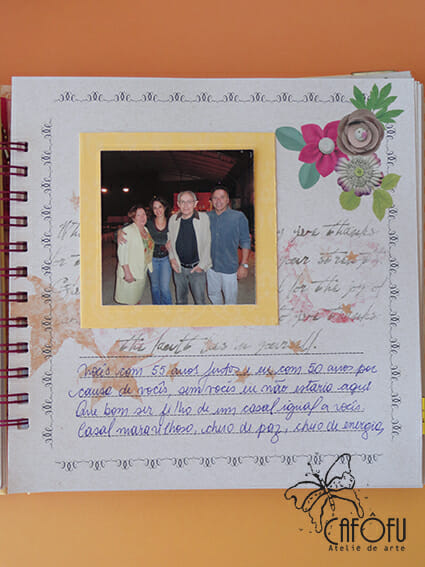 give thanks
for the joy of
the faith
in yourself.
Vocês com 55 anos juntos e eu com 50 anos por
causa de vocês, sem vocês eu não estaria aqui
Que bom ser filho de um casal igual a vocês
Casal maravilhoso, cheio de paz, cheio de energia,
CAFÔFU
Ateliê de arte